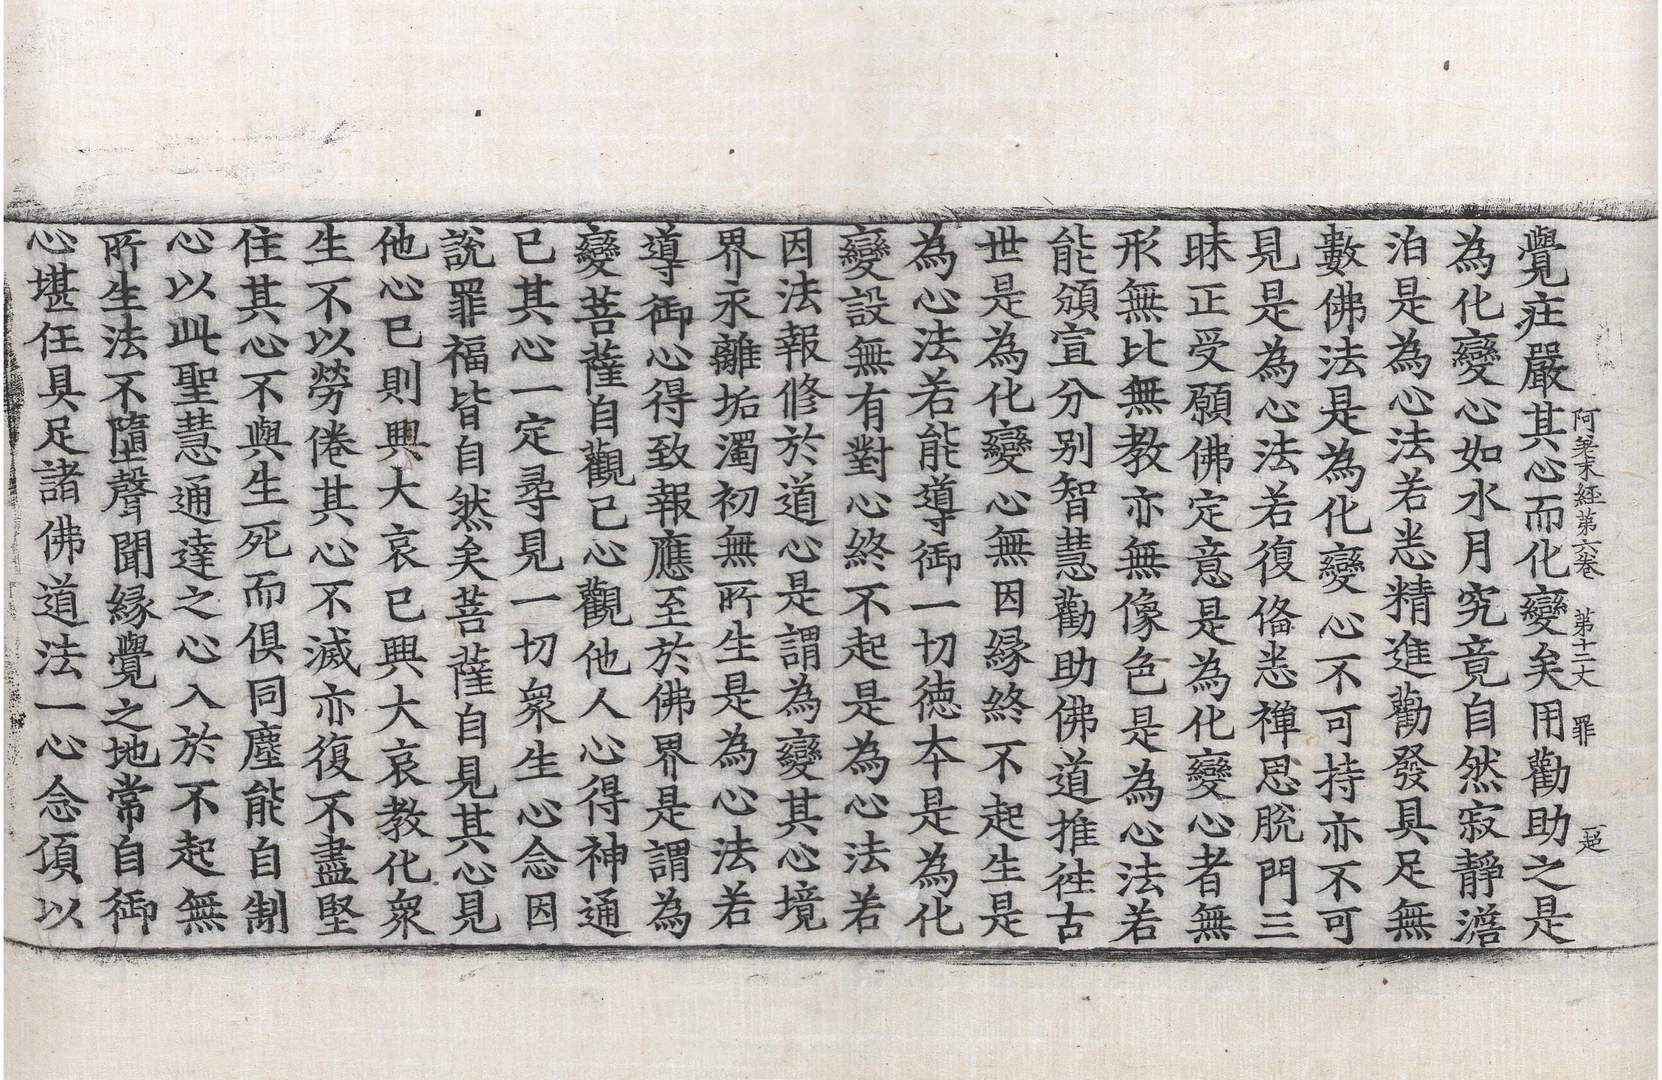 阿差末經第六卷 第十二丈 罪 超
覺庄嚴其心而化變矣用勸助之是
為化變心如水月究竟自然寂靜澹
泊是為心法若悉精進勸發具足無
數佛法是為化變心不可持亦不可
見是為心法若復俻悉禪思脫門三
昧正受願佛定意是為化變心者無
形無比無教亦無像色是為心法若
能頒宣分別智慧勸助佛道推徃古
世是為化變心無因緣終不起生是
為心法若能導御一切徳本是為化
變設無有對心終不起是為心法若
因法報修於道心是謂為變其心境
界永離垢濁初無所生是為心法若
導御心得致報應至於佛界是謂為
變菩薩自觀己心觀他人心得神通
已其心一定尋見一切衆生心念因
說罪福皆自然矣菩薩自見其心見
他心已則興大哀已興大哀教化衆
生不以勞倦其心不滅亦復不盡堅
住其心不與生死而俱同塵能自制
心以此聖慧通達之心入於不起無
所生法不墮聲聞緣覺之地常自御
心堪任具足諸佛道法一心念頂以